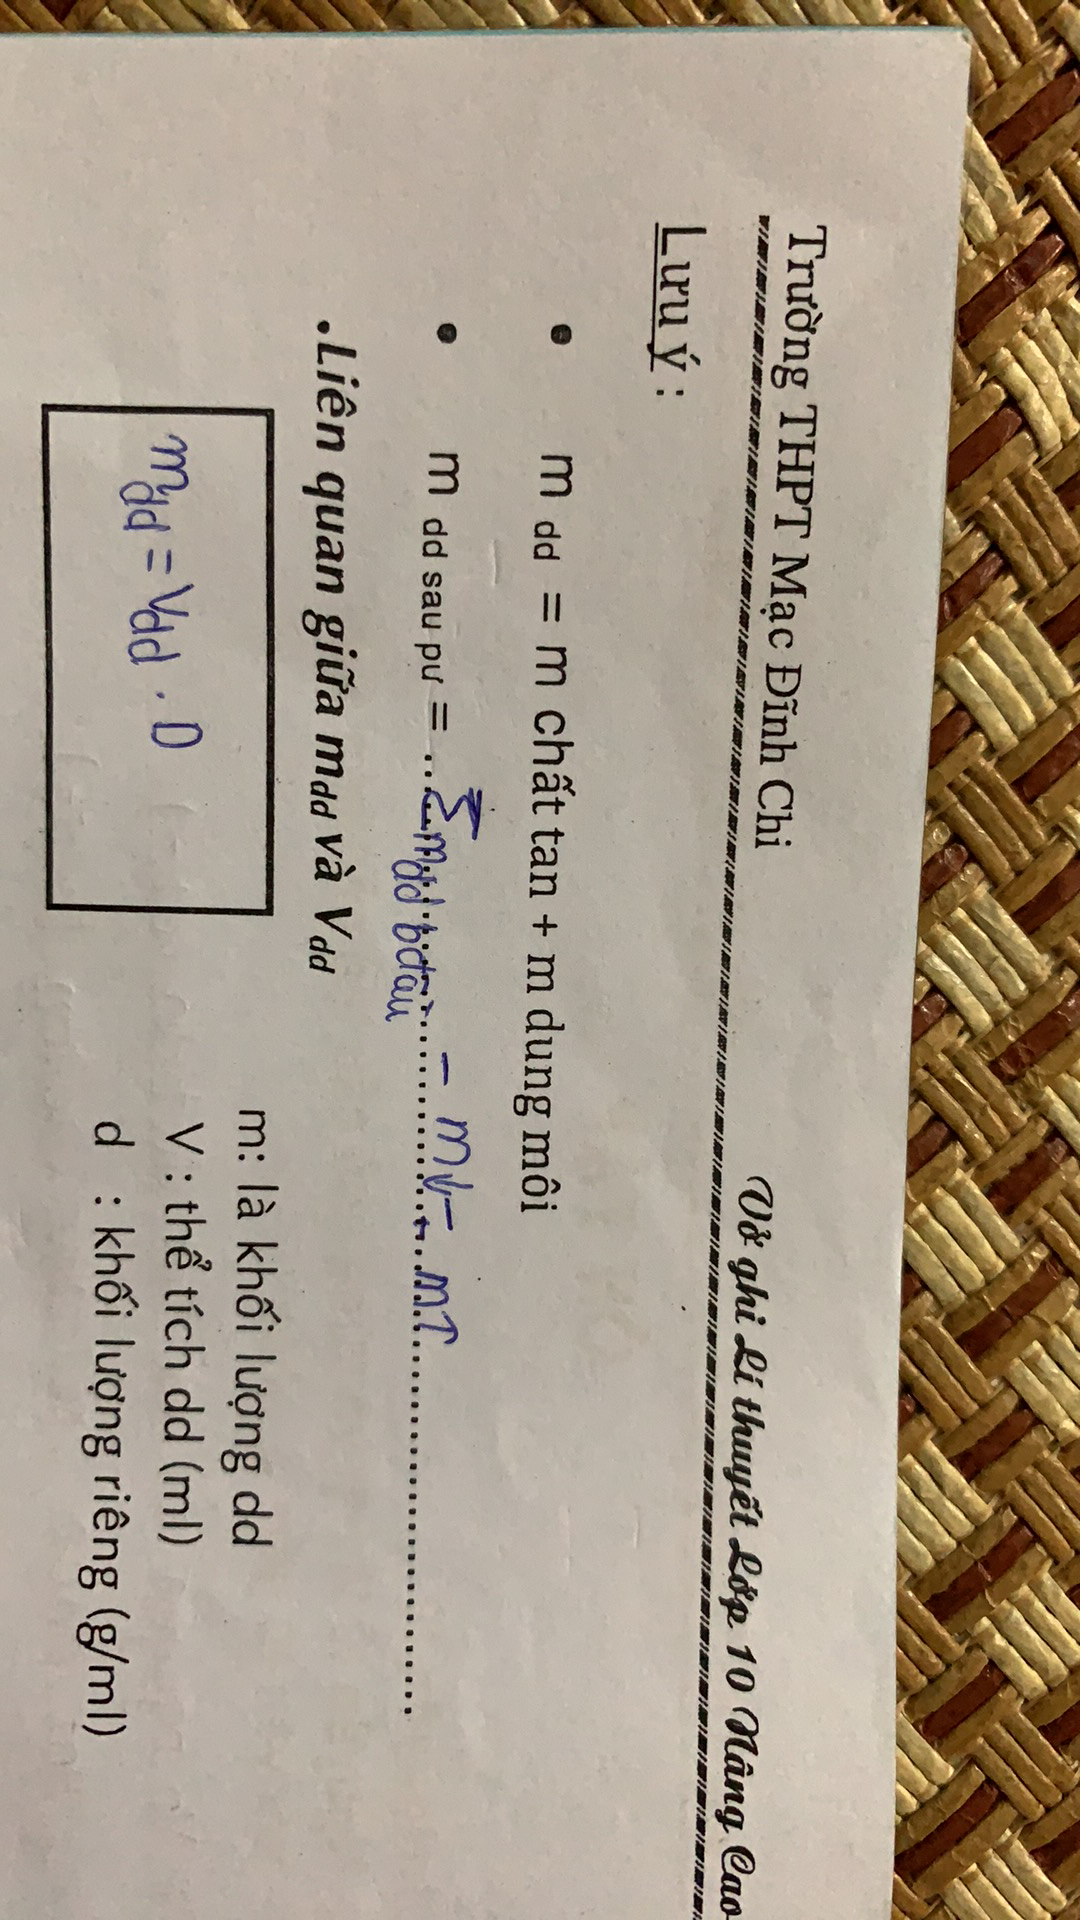 Trường THPT Mạc Đĩnh Chi Vở ghi Lí thuyết Lớp 10 Nâng Cao
Lưu ý :
• m dd = m chất tan + m dung môi
• m dd sau pư = ...Σ mdd bđầu - m↓ - m↑...
.Liên quan giữa mdd và Vdd
mdd = Vdd . D
m: là khối lượng dd
V : thể tích dd (ml)
d : khối lượng riêng (g/ml)